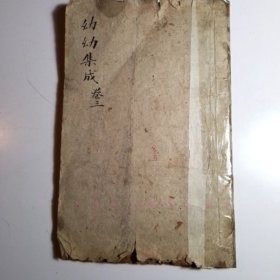 幼幼集成 卷三